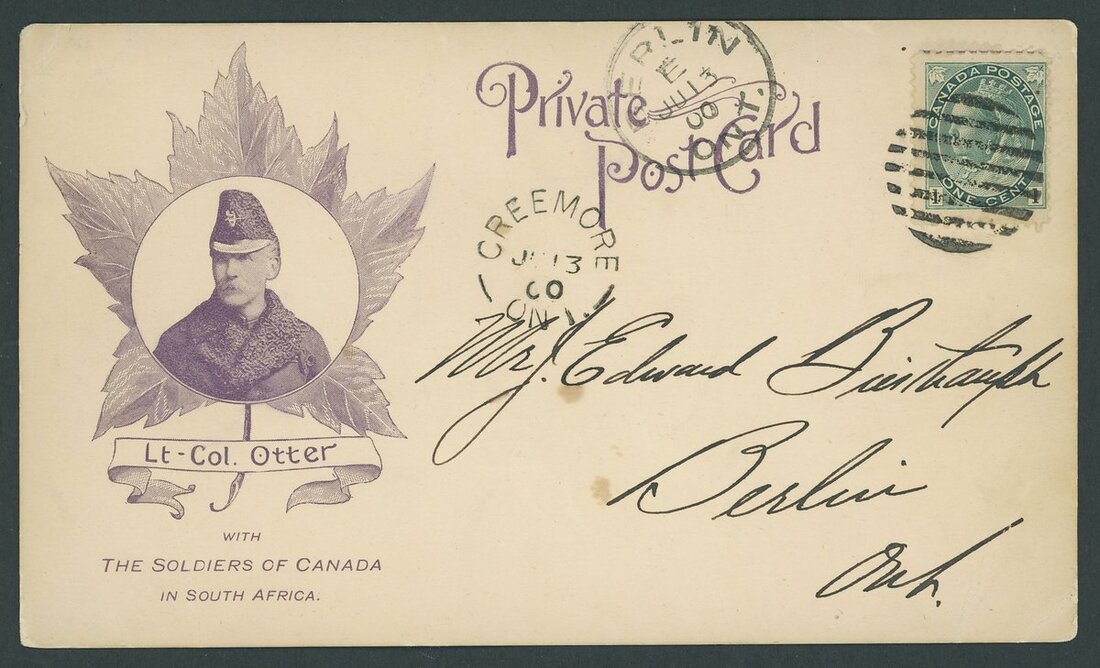 Private
Post Card
BERLIN
E
JU 13
00
ONT.
CANADA POSTAGE
ONE CENT
1 1
CREEMORE
JU 13
00
ONT.
Mr J. Edward
Berlin
Ont.
Lt-Col. Otter
WITH
THE SOLDIERS OF CANADA
IN SOUTH AFRICA.